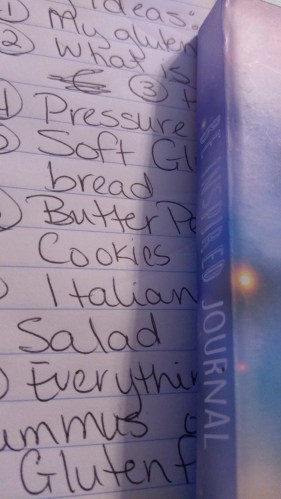 Ideas:
1) My gluten
2) What is
3)
Pressure
Soft Gl
bread
Butter Pe
Cookies
Italian
Salad
Everythin
ummus
Glutenf
BE INSPIRED JOURNAL